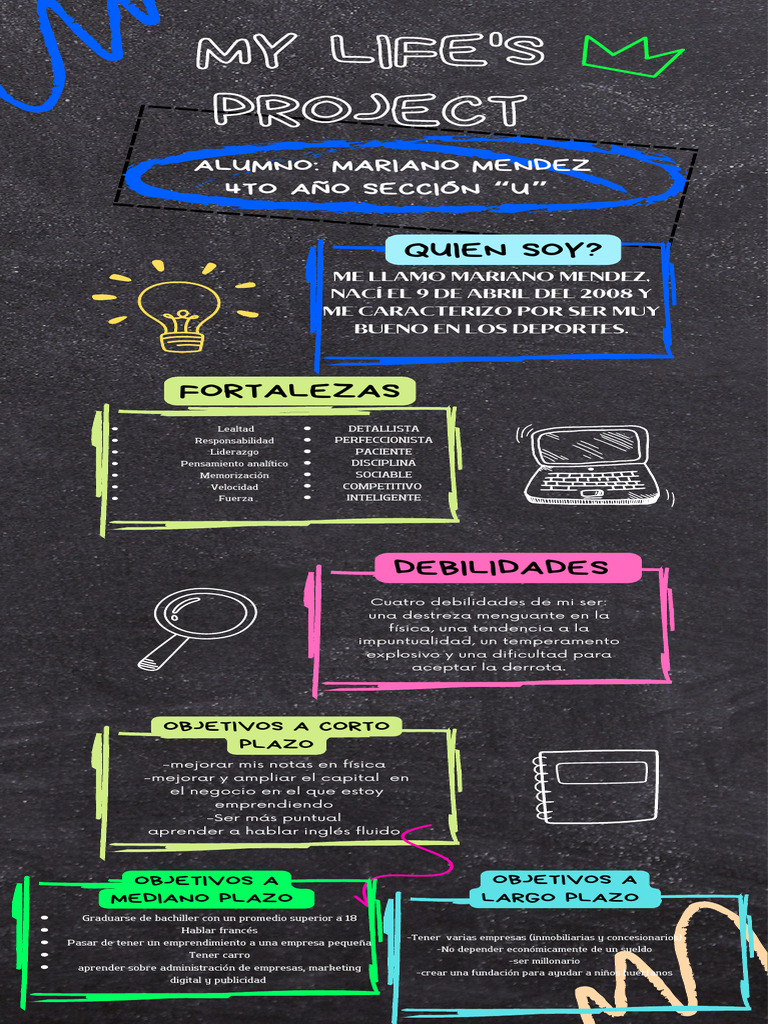 MY LIFE'S
PROJECT
ALUMNO: MARIANO MENDEZ
4TO AÑO SECCIÓN “U”
QUIEN SOY?
ME LLAMO MARIANO MENDEZ,
NACÍ EL 9 DE ABRIL DEL 2008 Y
ME CARACTERIZO POR SER MUY
BUENO EN LOS DEPORTES.
FORTALEZAS
Lealtad
Responsabilidad
Liderazgo
Pensamiento analítico
Memorización
Velocidad
Fuerza
DETALLISTA
PERFECCIONISTA
PACIENTE
DISCIPLINA
SOCIABLE
COMPETITIVO
INTELIGENTE
DEBILIDADES
Cuatro debilidades de mi ser:
una destreza menguante en la
física, una tendencia a la
impuntualidad, un temperamento
explosivo y una dificultad para
aceptar la derrota.
OBJETIVOS A CORTO
PLAZO
-mejorar mis notas en física
-mejorar y ampliar el capital en
el negocio en el que estoy
emprendiendo
-Ser más puntual
aprender a hablar inglés fluido
OBJETIVOS A
MEDIANO PLAZO
Graduarse de bachiller con un promedio superior a 18
Hablar francés
Pasar de tener un emprendimiento a una empresa pequeña
Tener carro
aprender sobre administración de empresas, marketing
digital y publicidad
OBJETIVOS A
LARGO PLAZO
-Tener varias empresas (inmobiliarias y concesionarios)
-No depender económicamente de un sueldo
-ser millonario
-crear una fundación para ayudar a niños huérfanos